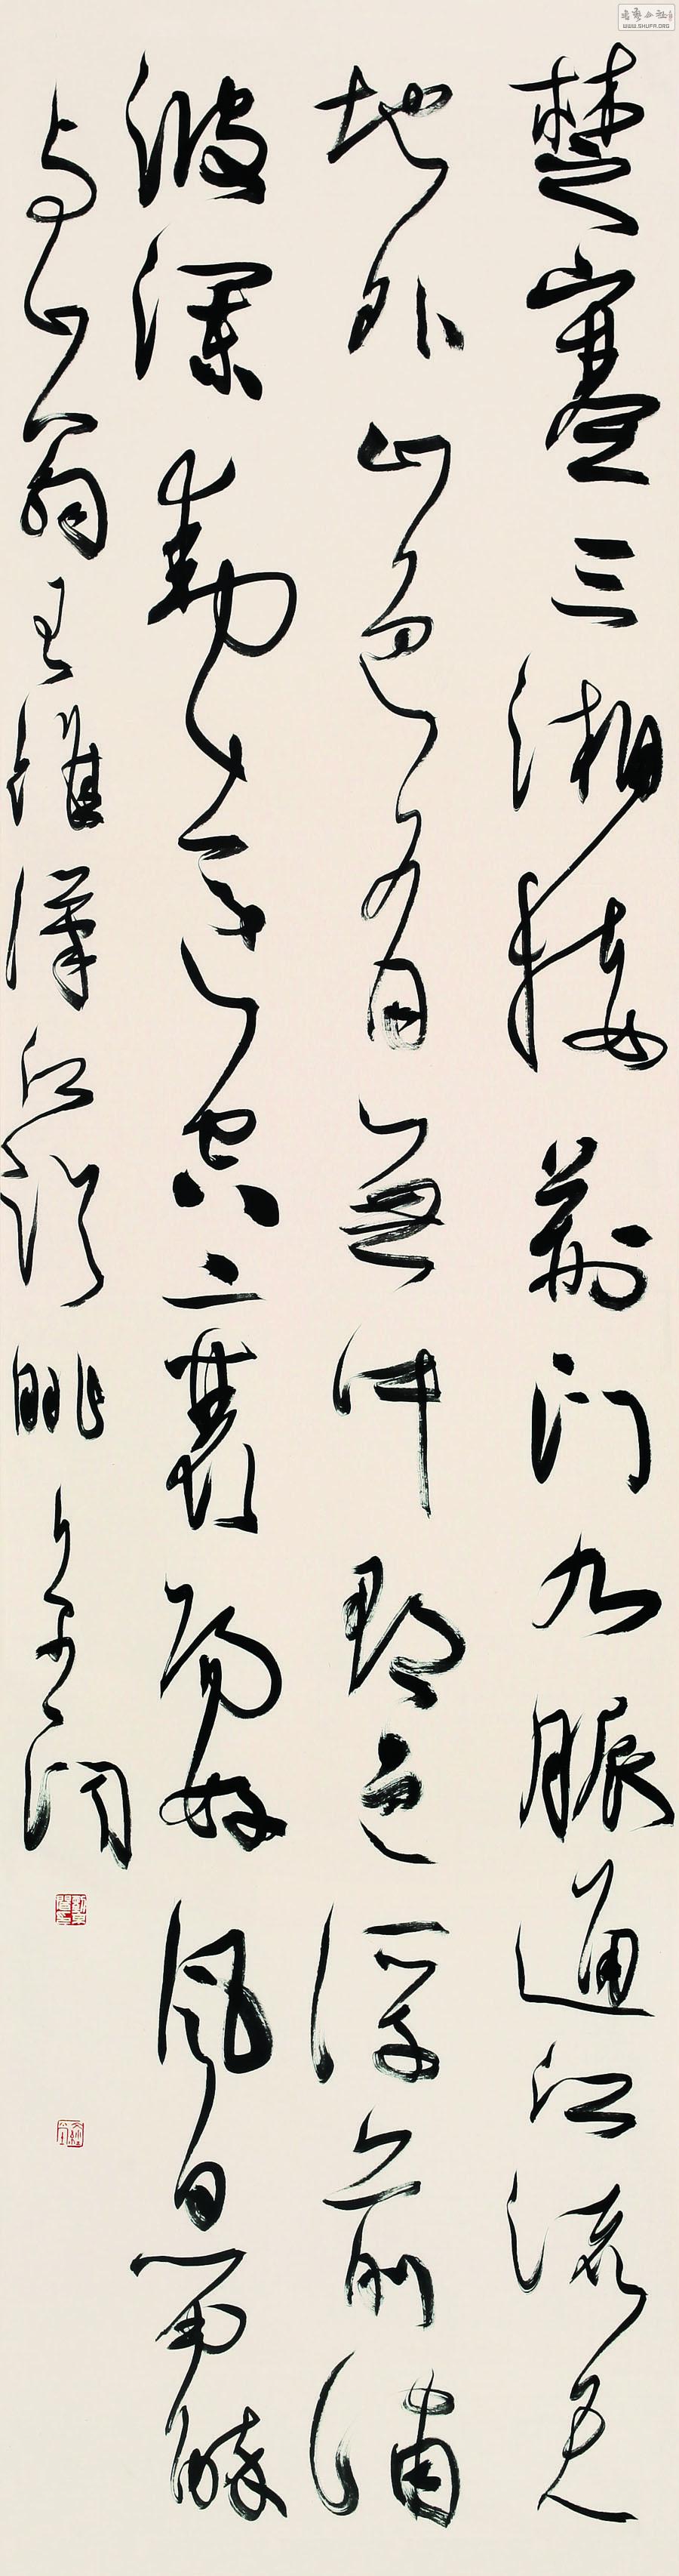 WWW.SHUFA.ORG
楚塞三湘接荆門九脈通江流天
地外山色有無中郡邑浮前浦
波瀾動遠空襄陽好風日留醉
与山翁王維漢江臨眺